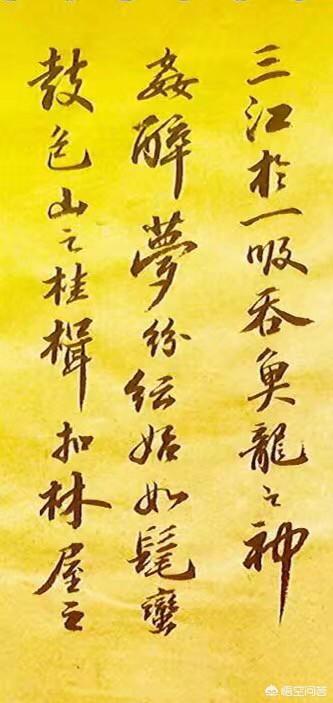 三江於一吸吞魚龍之神
姦醉夢紛紜始如髦蠻
鼓包山之桂楫扣林屋之
悟空问答